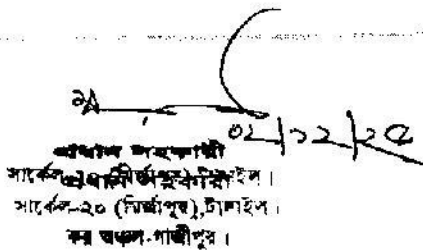 ০২/১২/২৫
প্রধান সহকারী
সার্কেল-২০ (মির্জাপুর), টাঙ্গাইল।
প্রধান সহকারী
সার্কেল-২০ (মির্জাপুর), টাঙ্গাইল।
কর অঞ্চল-গাজীপুর।